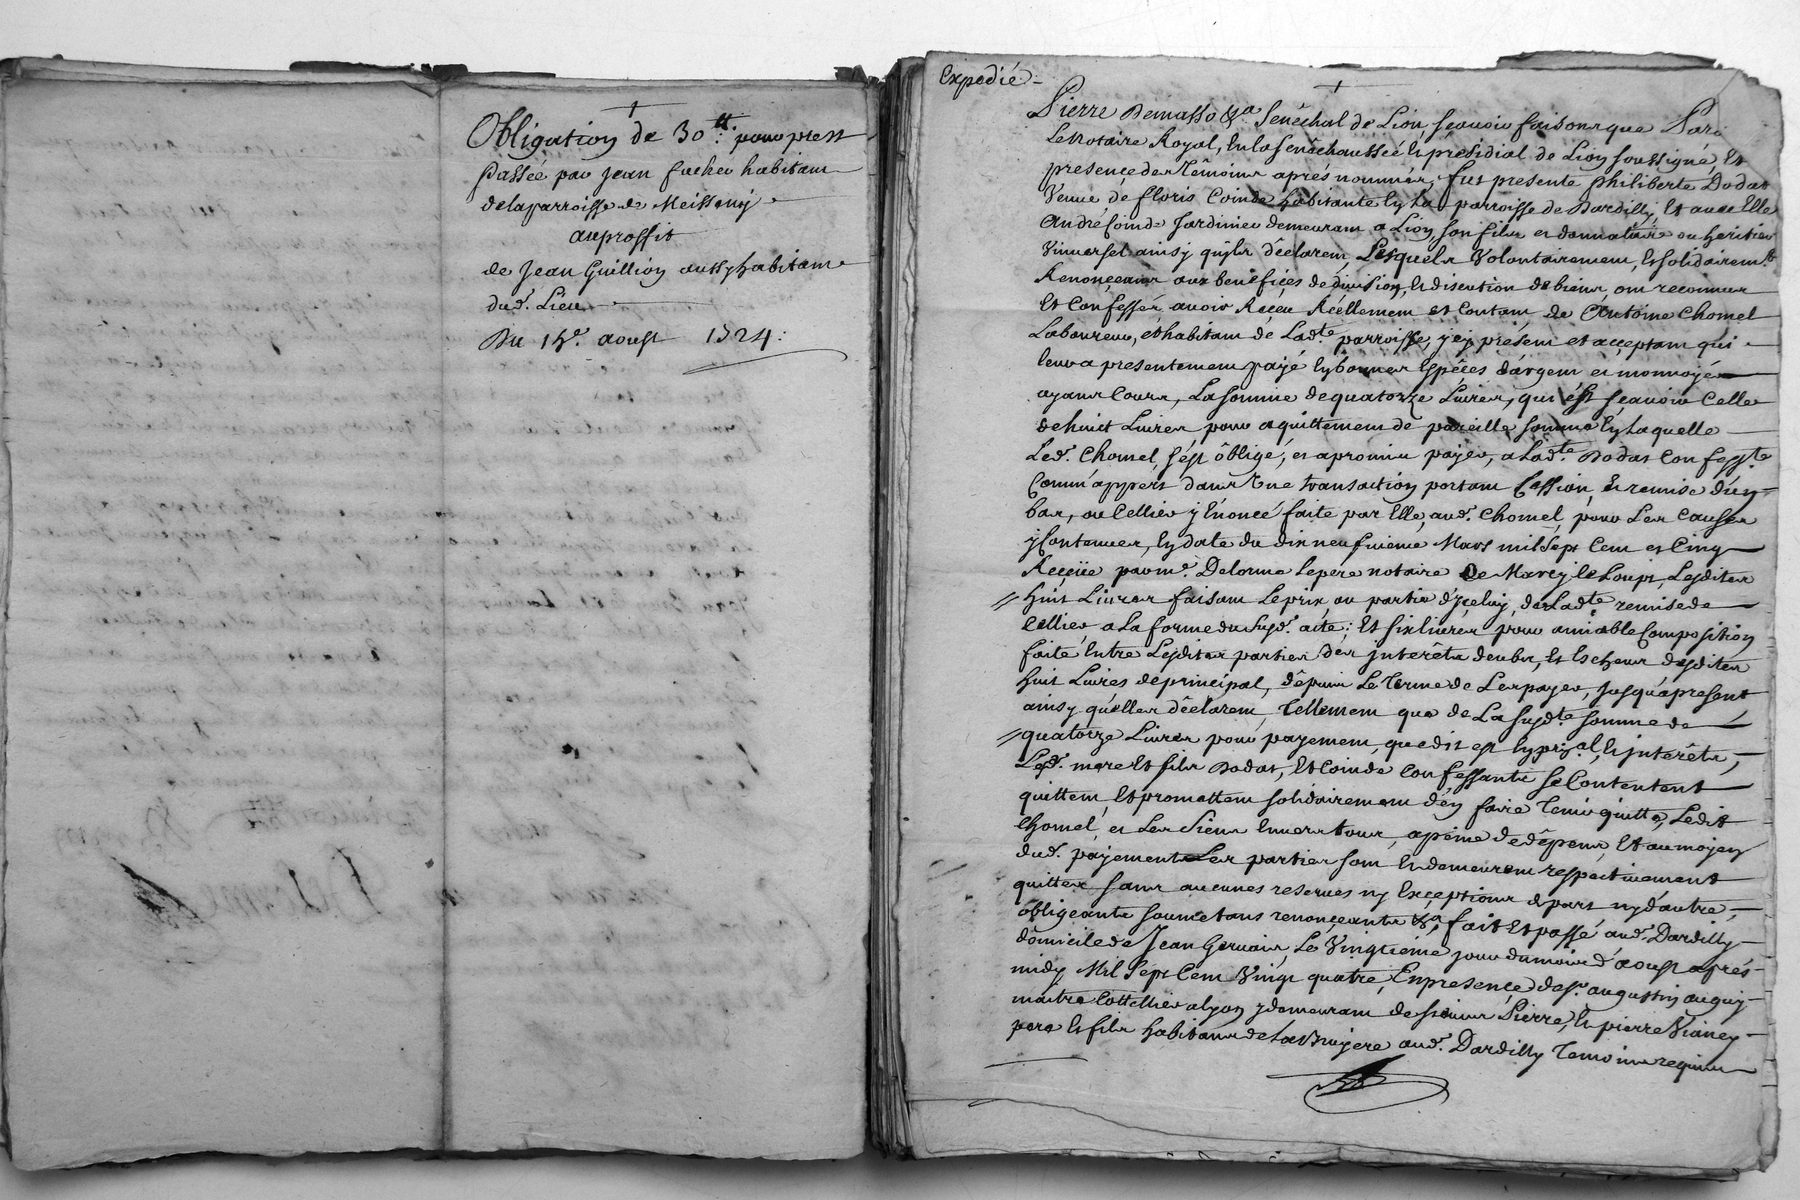 Obligation de 30 tt. pour prest
passée par jean fucher habitant
de la parroisse de Meissimÿ
au proffit
de Jean Guillion aussy habitant
dud. Lieu
Du 15e. aoust 1724.
Expedié
Pierre Demasso &a Senéchal de Lion, sçavoir faisons que Par
Le Notaire Royal, En la Senéchaussée Et présidial de Lion soussigné, Et
presence des Têmoins aprés nommés, fut presente Philiberte Dodat
Veuve de floris Coinde habitante En La parroisse de Dardilly, Et avec Elle
André Coinde Jardinier demeurant a Lion, son fils et donnataire ou heritier
Vniversel ainsy qu'ils déclarent, Lesquels Volontairement, Et solidairemt.
Renonçeants aux benéfices de division, Et discution de biens, ont reconnu
Et Confessé, avoir Reçeu Réëllement et Contant, de Antoine Chomel
Laboureur, et habitant de Ladte. parroisse, y ēn présent et acçeptant qui
leur a presentement payé En bonnes Espéces d'argent et monnoye
ayants Cours, La somme de quatorze Livres, qui ést sçavoir Celle
de huict Livres pour aquittement de pareille somme En Laquelle
Led. Chomel, s'ést obligé, et a promis payer, a Ladte. Dodat Confesste.
Comm'appert dans Vne transaction portant Cession, Et remise d'un
bas, ou Cellier y Enoncé faite par Elle, aud. Chomel, pour Les Causes
y Contenues, En date du dix neufvieme Mars mil sept Cent et Cinq
Reçeüe par me. Delorme Le pere notaire de Marcy le Loup, Lesdites
huit Livres faisant Le prix, ou partie d'Jceluy, de Ladte. remise de
Cellier a La forme du susd. acte; Et six livres pour amiable Composition
faite Entre Lesdites parties des jnterêts deubs, Et Escheus desdites
huit Livres de principal, dépuis Le Terme de Les payer, Jusqu'apresent
ainsy qu'elles déclarent, Tellement que de La susdte. somme de
quatorze Livres pour payement, que dit est En prīal, Et jnterêts,
Lesd. mere Et fils Dodat, Et Coinde Confessants se Contentent
quittent, Et promettent solidairement d'en faire Tenir quitte, Ledit
Chomel, et Les Siens Envers tous, a peine de dêpens, Et au moyen
dud. payement Les parties sont Et demeurent respectivement
quittes sans aucunes reserves ny Exçeptions de part ny d'autre,
obligeants soumetans renonçeants &a, fait Et passé aud. Dardilly
domicile de Jean Gervais, Le Vingtieme jour du mois d'aoust aprés
midy Mil Sept Cent Vingt quatre, En presençe de sr. augustin auguy
maitre Cottellier a Lyon y demeurant de sieurs Pierre, Et pierre Vianey
pere Et fils habitans de La Bruyere aud. Dardilly Temoins requis